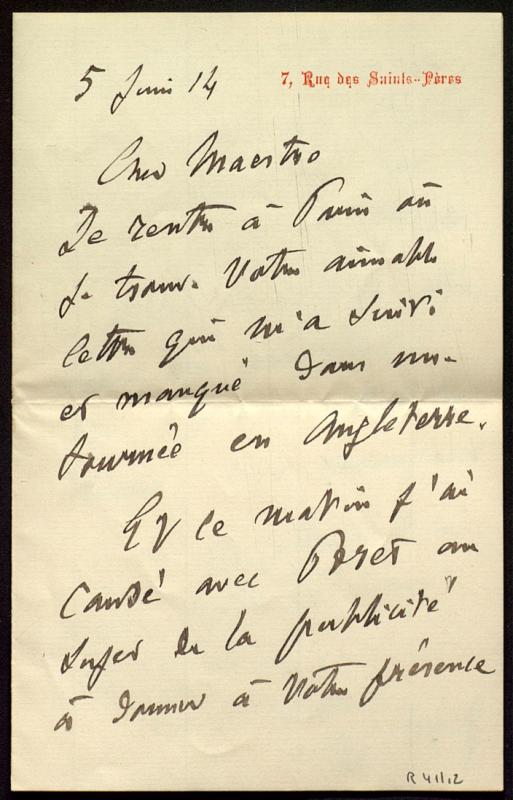 7, Rue des Saints-Pères
5 Juin 14
Cher Maestro
Je rentre à Paris où
Je trouve Votre aimable
lettre qui m'a suivi
et manqué dans une
tournée en Angleterre.
ce matin j'ai
causé avec Poret au
sujet de la publicité
à donner à Votre présence
R 41/12